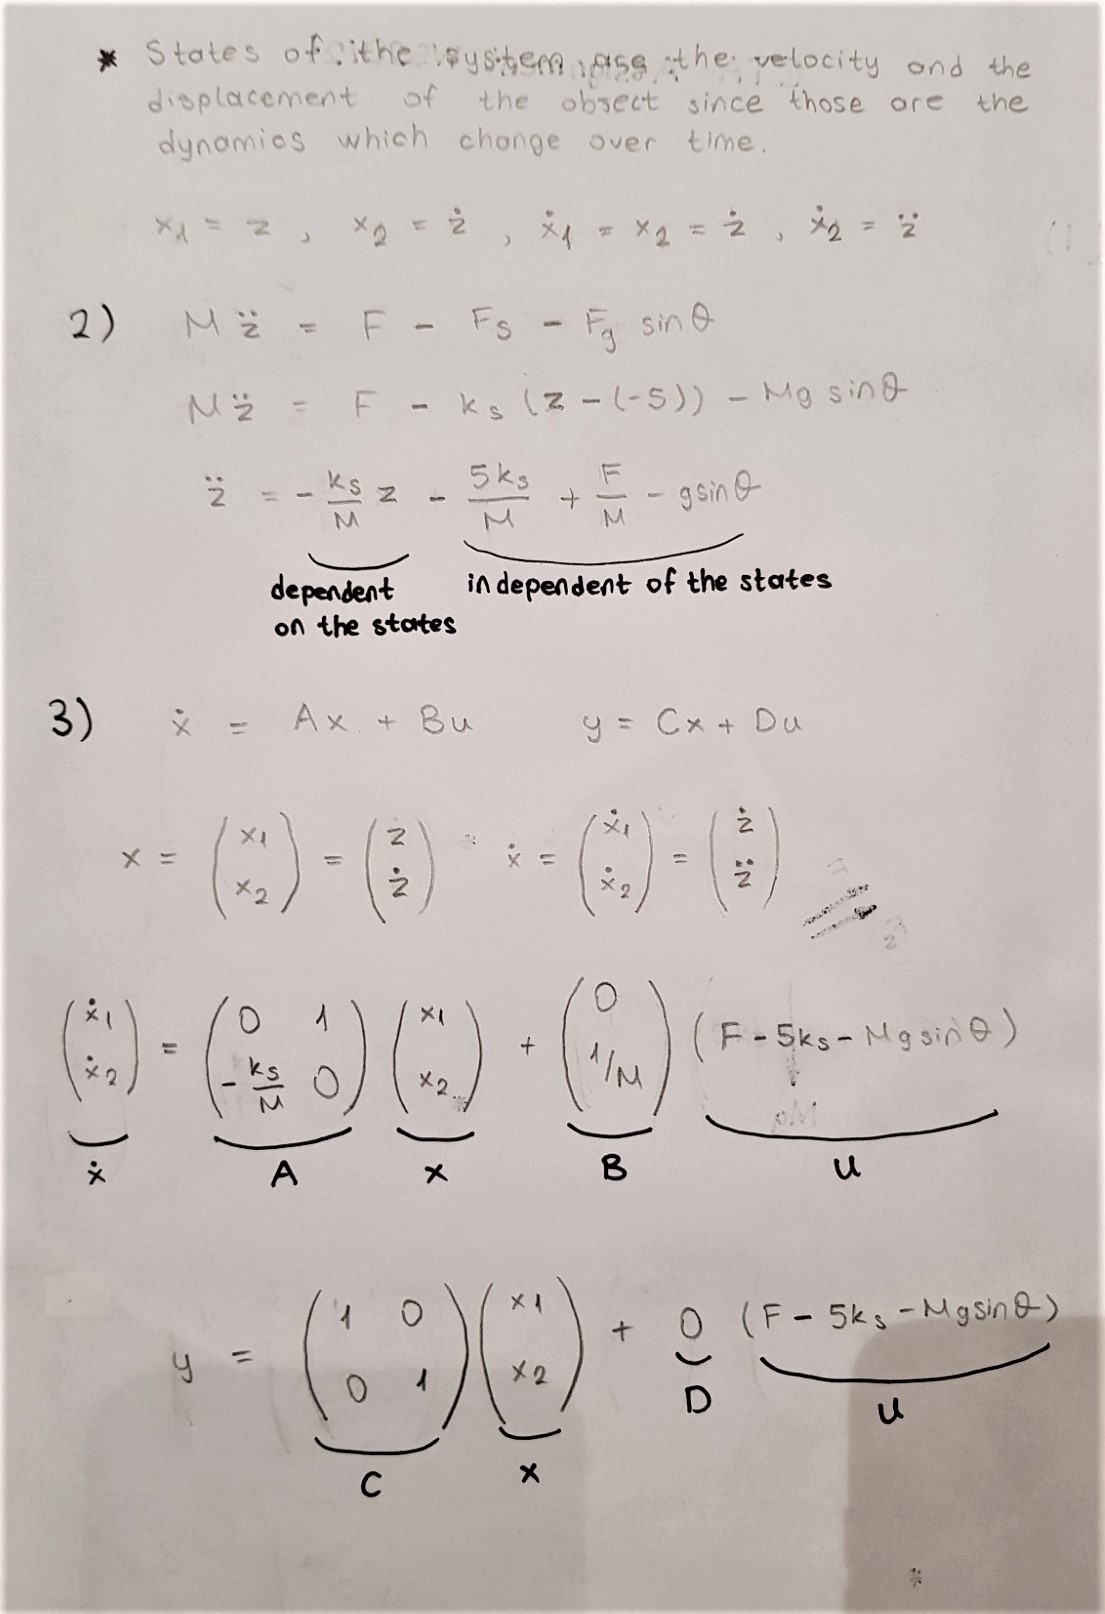 * States of the system are the velocity and the
displacement of the object since those are the
dynamics which change over time.
x₁ = z , x₂ = ż , ẋ₁ = x₂ = ż , ẋ₂ = z̈
2) M z̈ = F - Fs - Fg sinθ
M z̈ = F - ks (z - (-5)) - Mg sinθ
z̈ = - ks/M z - 5ks/M + F/M - g sinθ
dependent on the states
independent of the states
3) ẋ = Ax + Bu y = Cx + Du
x = (x₁ x₂) = (z ż) ẋ = (ẋ₁ ẋ₂) = (ż z̈)
(ẋ₁ ẋ₂) = (0 1 -ks/M 0) (x₁ x₂) + (0 1/M) (F - 5ks - Mg sinθ)
ẋ A x B u
y = (1 0 0 1) (x₁ x₂) + 0 (F - 5ks - Mg sinθ)
C x D u